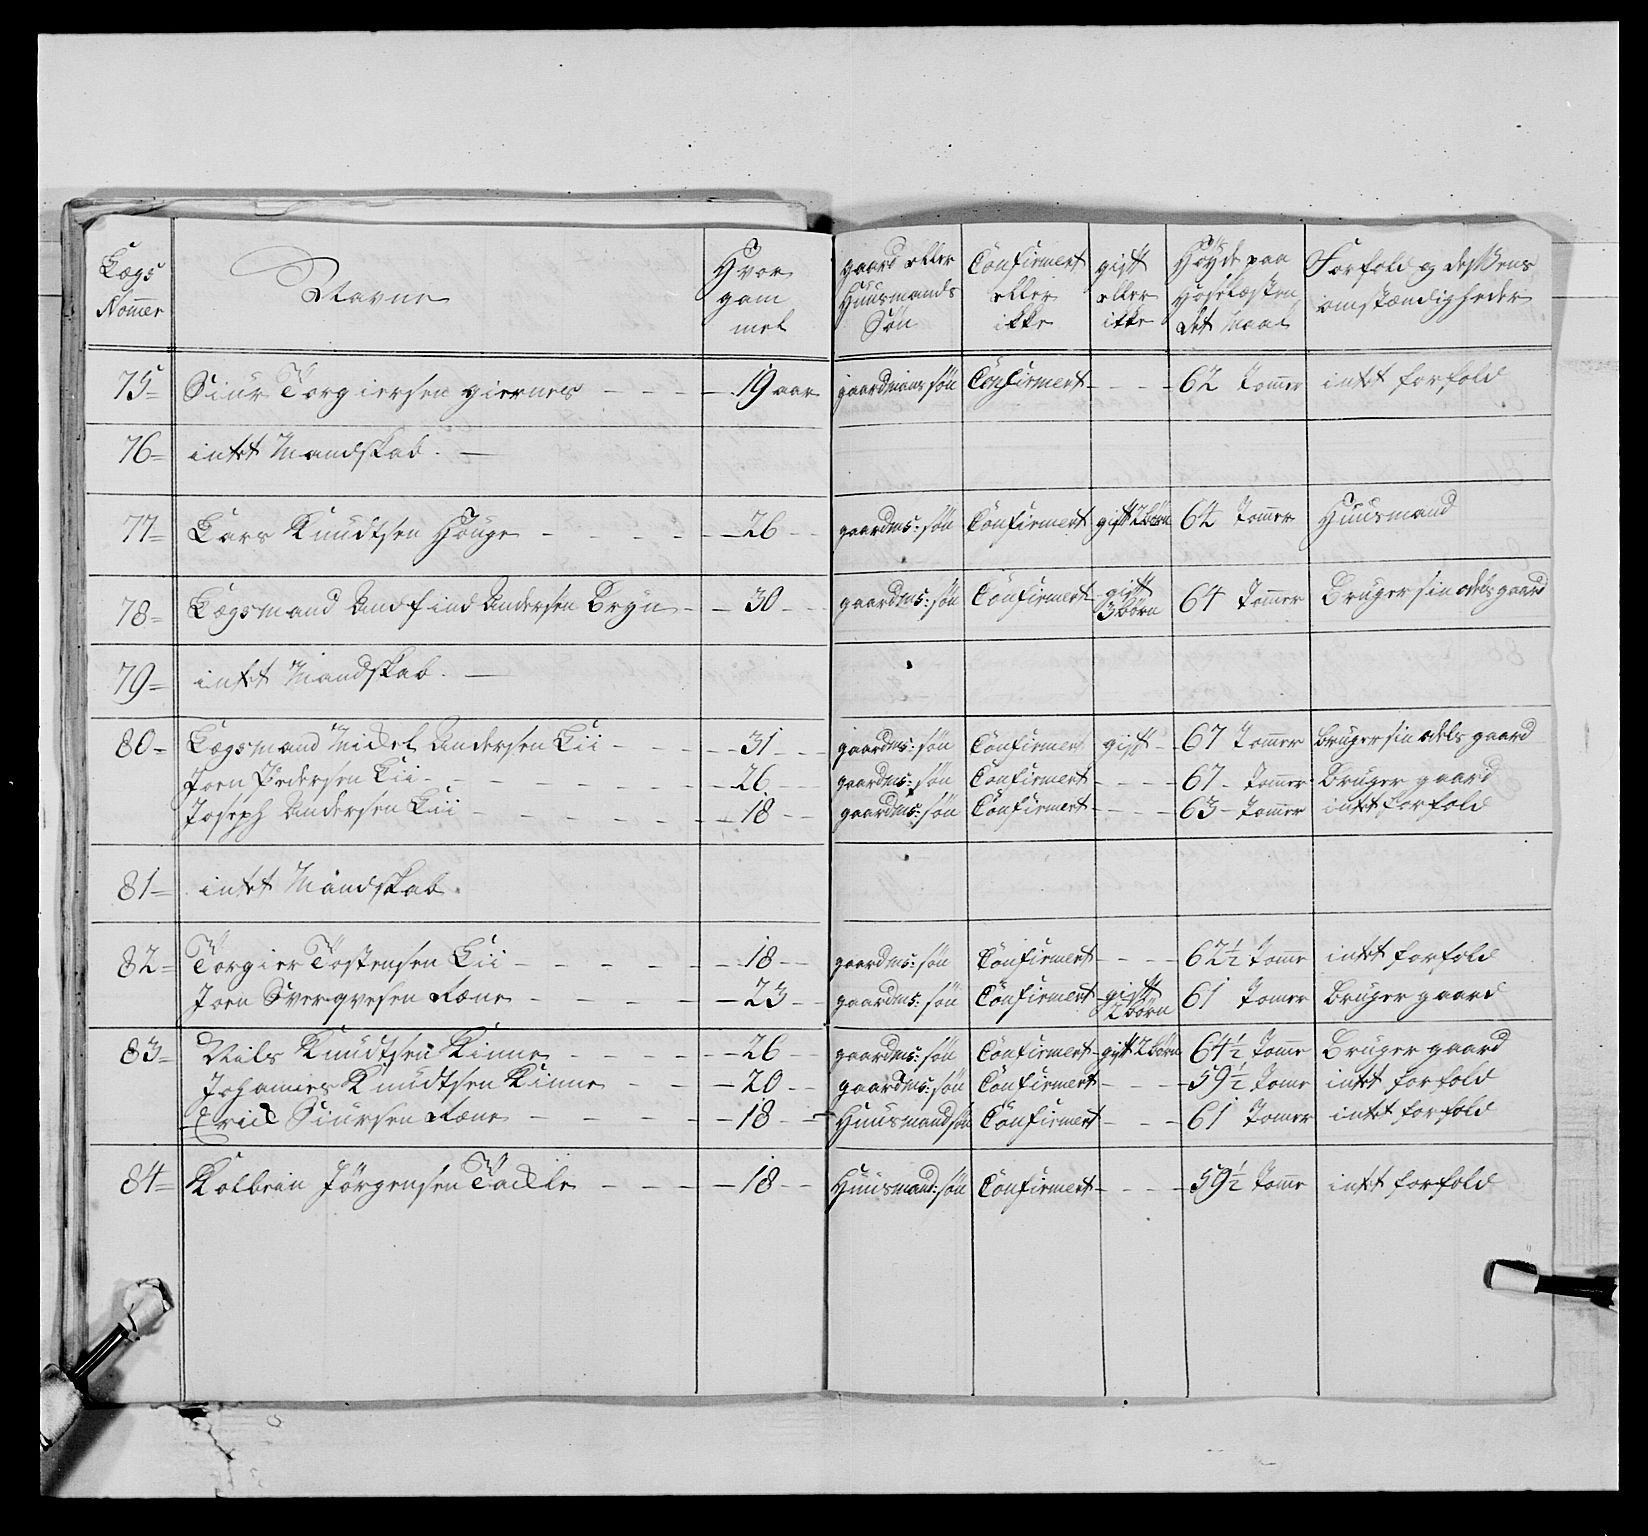 Lægs Nomer | Navne | Hvor gam mel | gaard eller Huusmands Søn | Confirmert eller ikke | gift eller ikke | Høyde paa Hoselæsten det Maal | Forfold og desssens omstændigheder
75 Siur Torgiersen giernes - - - 19 aar gaardmans søn Confirmert - - - 62 Tomer intet forfold
76 intet Mandskab. -
77 Lars Knudtsen Houge - - - - 26 - gaardms: søn Confirmert gift 2 børn 64 Tomer Huusmand
78 Lægsmand Andfind Andersen Bryn - - 30 - gaardms: søn Confirmert gift 3 børn 64 Tomer Bruger sin odels gaard
79 intet Mandskab. -
80 Lægsmand Mickel Andersen Lii - - - 31 - gaardms: søn Confirmert gift - 67 Tomer bruger sin odels gaard
Joen Pedersen Lii - - - - 26 - gaardms: søn Confirmert - - - 67 - Tomer bruger gaard
Joseph Andersen Lii - - - - 18 - gaardms: søn Confirmert - - - 63 - Tomer intet forfold
81 intet Mandskab.
82 Torgier Tostensen Lii - - - - 18 - gaardms: søn Confirmert - - - 62½ Tome intet forfold
Joen Sverqvesen Rene - - - - 23 - gaardms: søn Confirmert gift 2 børn 61 Tomer bruger gaard
83 Niils Knudtsen Kinne - - - - 26 - gaardms: søn Confirmert gift 2 børn 64½ Tome Bruger gaard
Johannes Knudtsen Kinne - - - 20 - gaardms: søn Confirmert - - - 59½ Tome intet forfold
Erick Siursen Rene - - - - 18 - Huusmand søn Confirmert - - - 61 Tomer intet forfold
84 Kolbein Jørgensen - - - 18 - Huusmand: søn Confirmert - - - 59½ Tome intet forfold